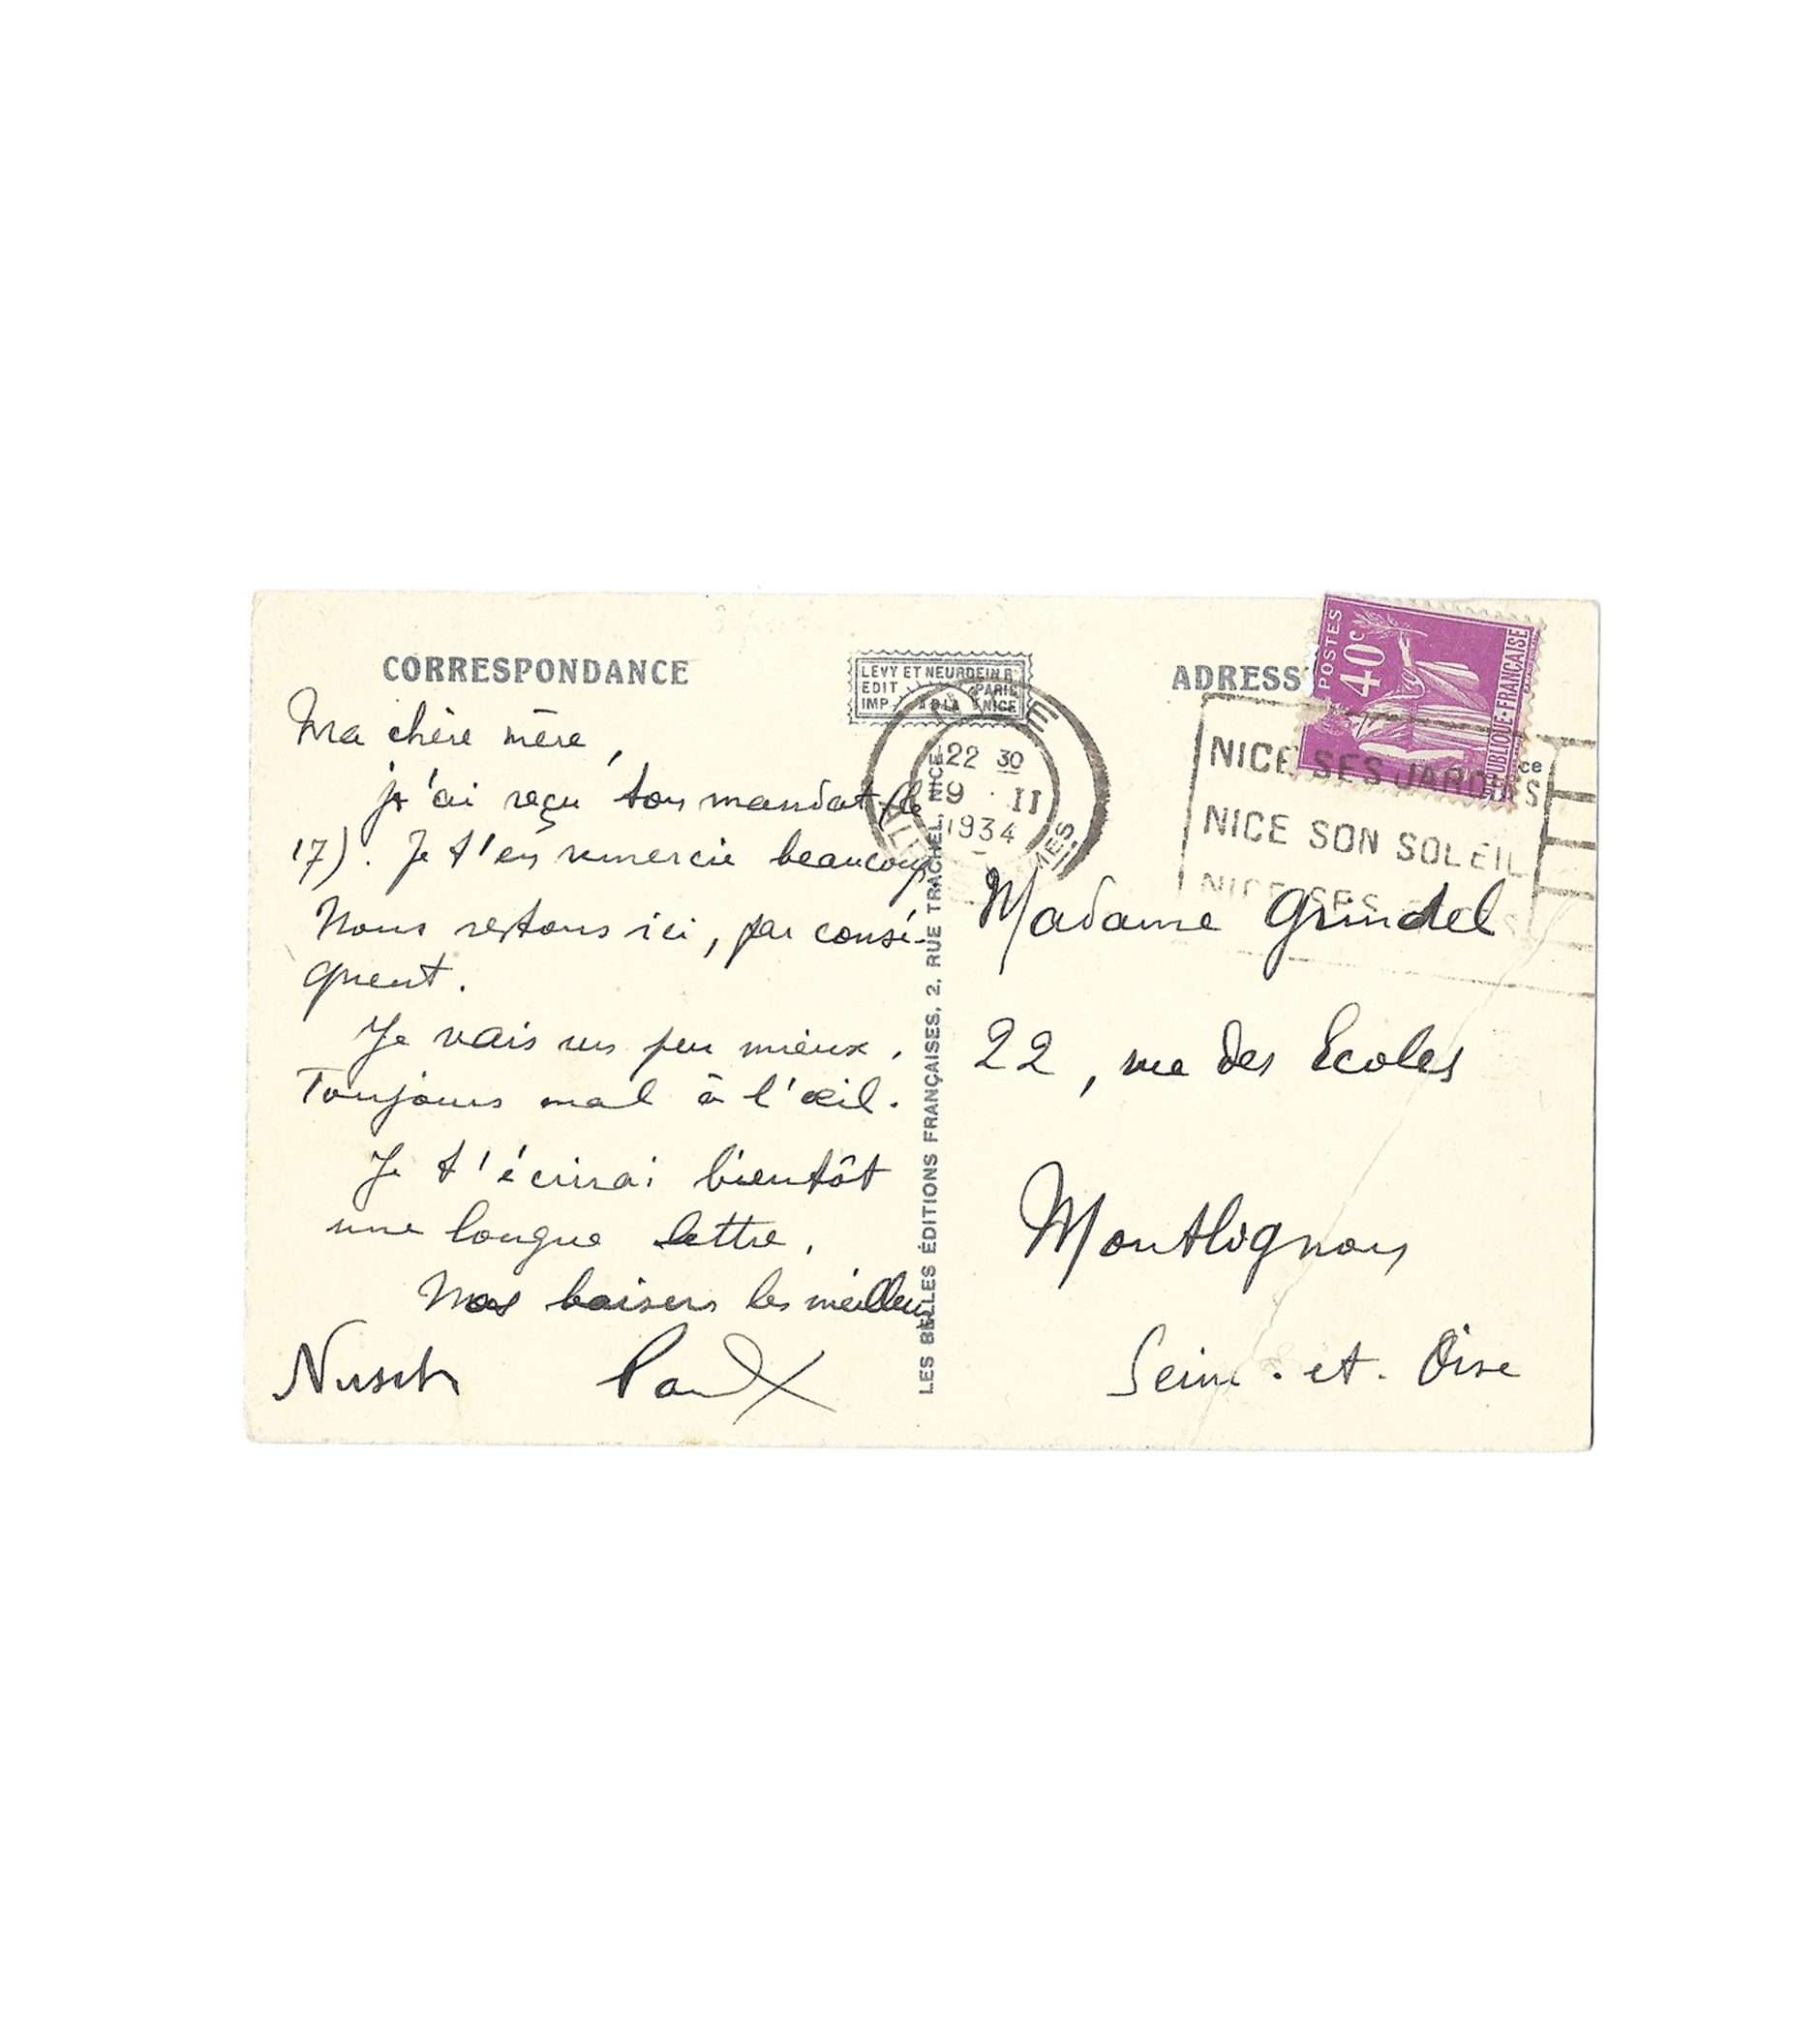 CORRESPONDANCE
Ma chère mère,
j'ai reçu ton mandat (le
17). Je t'en remercie beaucoup
Nous restons ici, par consé-
quent.
Je vais un peu mieux.
Toujours mal à l'œil.
Je t'écrirai bientôt
une longue lettre.
Nos baisers les meilleurs
Nusch Paul
LEVY ET NEURDEIN R
EDIT PARIS
IMP. NICE
22 30
9 · II
1934
LES BELLES ÉDITIONS FRANÇAISES, 2, RUE TRACHEL, NICE
ADRESS
POSTES
40c
RÉPUBLIQUE·FRANÇAISE
ce
NICE SES JARDINS
NICE SON SOLEIL
NICE SES
Madame Grindel
22, rue des Ecoles
Montlignon
Seine-et-Oise